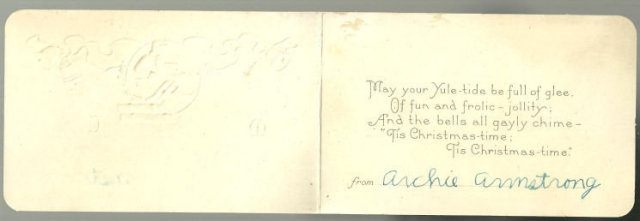 May your Yule-tide be full of glee.
Of fun and frolic - jollity;
And the bells all gayly chime -
"'Tis Christmas-time;
'Tis Christmas-time."
from Archie Armstrong